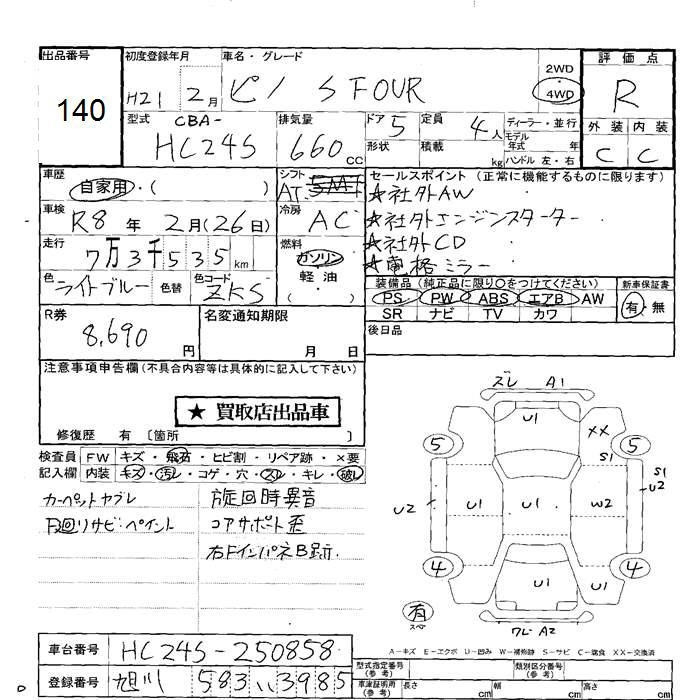 出品番号 初度登録年月 車名・グレード 評価点
140 H21 2月 ピノ S FOUR 2WD 4WD R
型式 CBA- HC24S 排気量 660 cc ドア 5 定員 4人 ディーラー・並行 外装 内装
形状 積載 kg モデル年式 年式 ハンドル 左・右 C C
車歴 自家用・( ) シフト AT セールスポイント (正常に機能するものに限ります)
★社外AW
車検 R8年 2月(26日) 冷房 AC ★社外エンジンスターター
★社外CD
走行 7万3千535km 燃料 ガソリン 軽油 ( ) ★電格ミラー
色 ライトブルー 色替 色コード ZKS 装備品 (純正品に限り○をつけてください) 新車保証書
PS PW ABS エアB AW 有・無
SR ナビ TV カワ
R券 8,690円 名変通知期限 月 日 後日品
注意事項申告欄(不具合内容等は具体的に記入して下さい)
★ 買取店出品車
修復歴 有 〔箇所 〕
検査員 FW キズ・飛石・ヒビ割・リペア跡・×要
記入欄 内装 キズ・汚レ・コゲ・穴・スレ・キレ・破レ
カーペットヤブレ 旋回時異音
下回リサビ・ペイント コアサポート歪
右Fインパネ B跡
ズレ A1
U1
XX
5 5
S1
S1
U2
U2 U1 U1 W2
4 4
U1 U1
有
スペ
ワレ A2
A-キズ E-エクボ U-凹み W-補修跡 S-サビ C-腐食 XX-交換済
車台番号 HC24S-250858
型式指定番号 (参考) 類別区分番号 (参考)
登録番号 旭川 583 い 3985
車庫証明用 (参考) 長さ cm 幅 cm 高さ cm